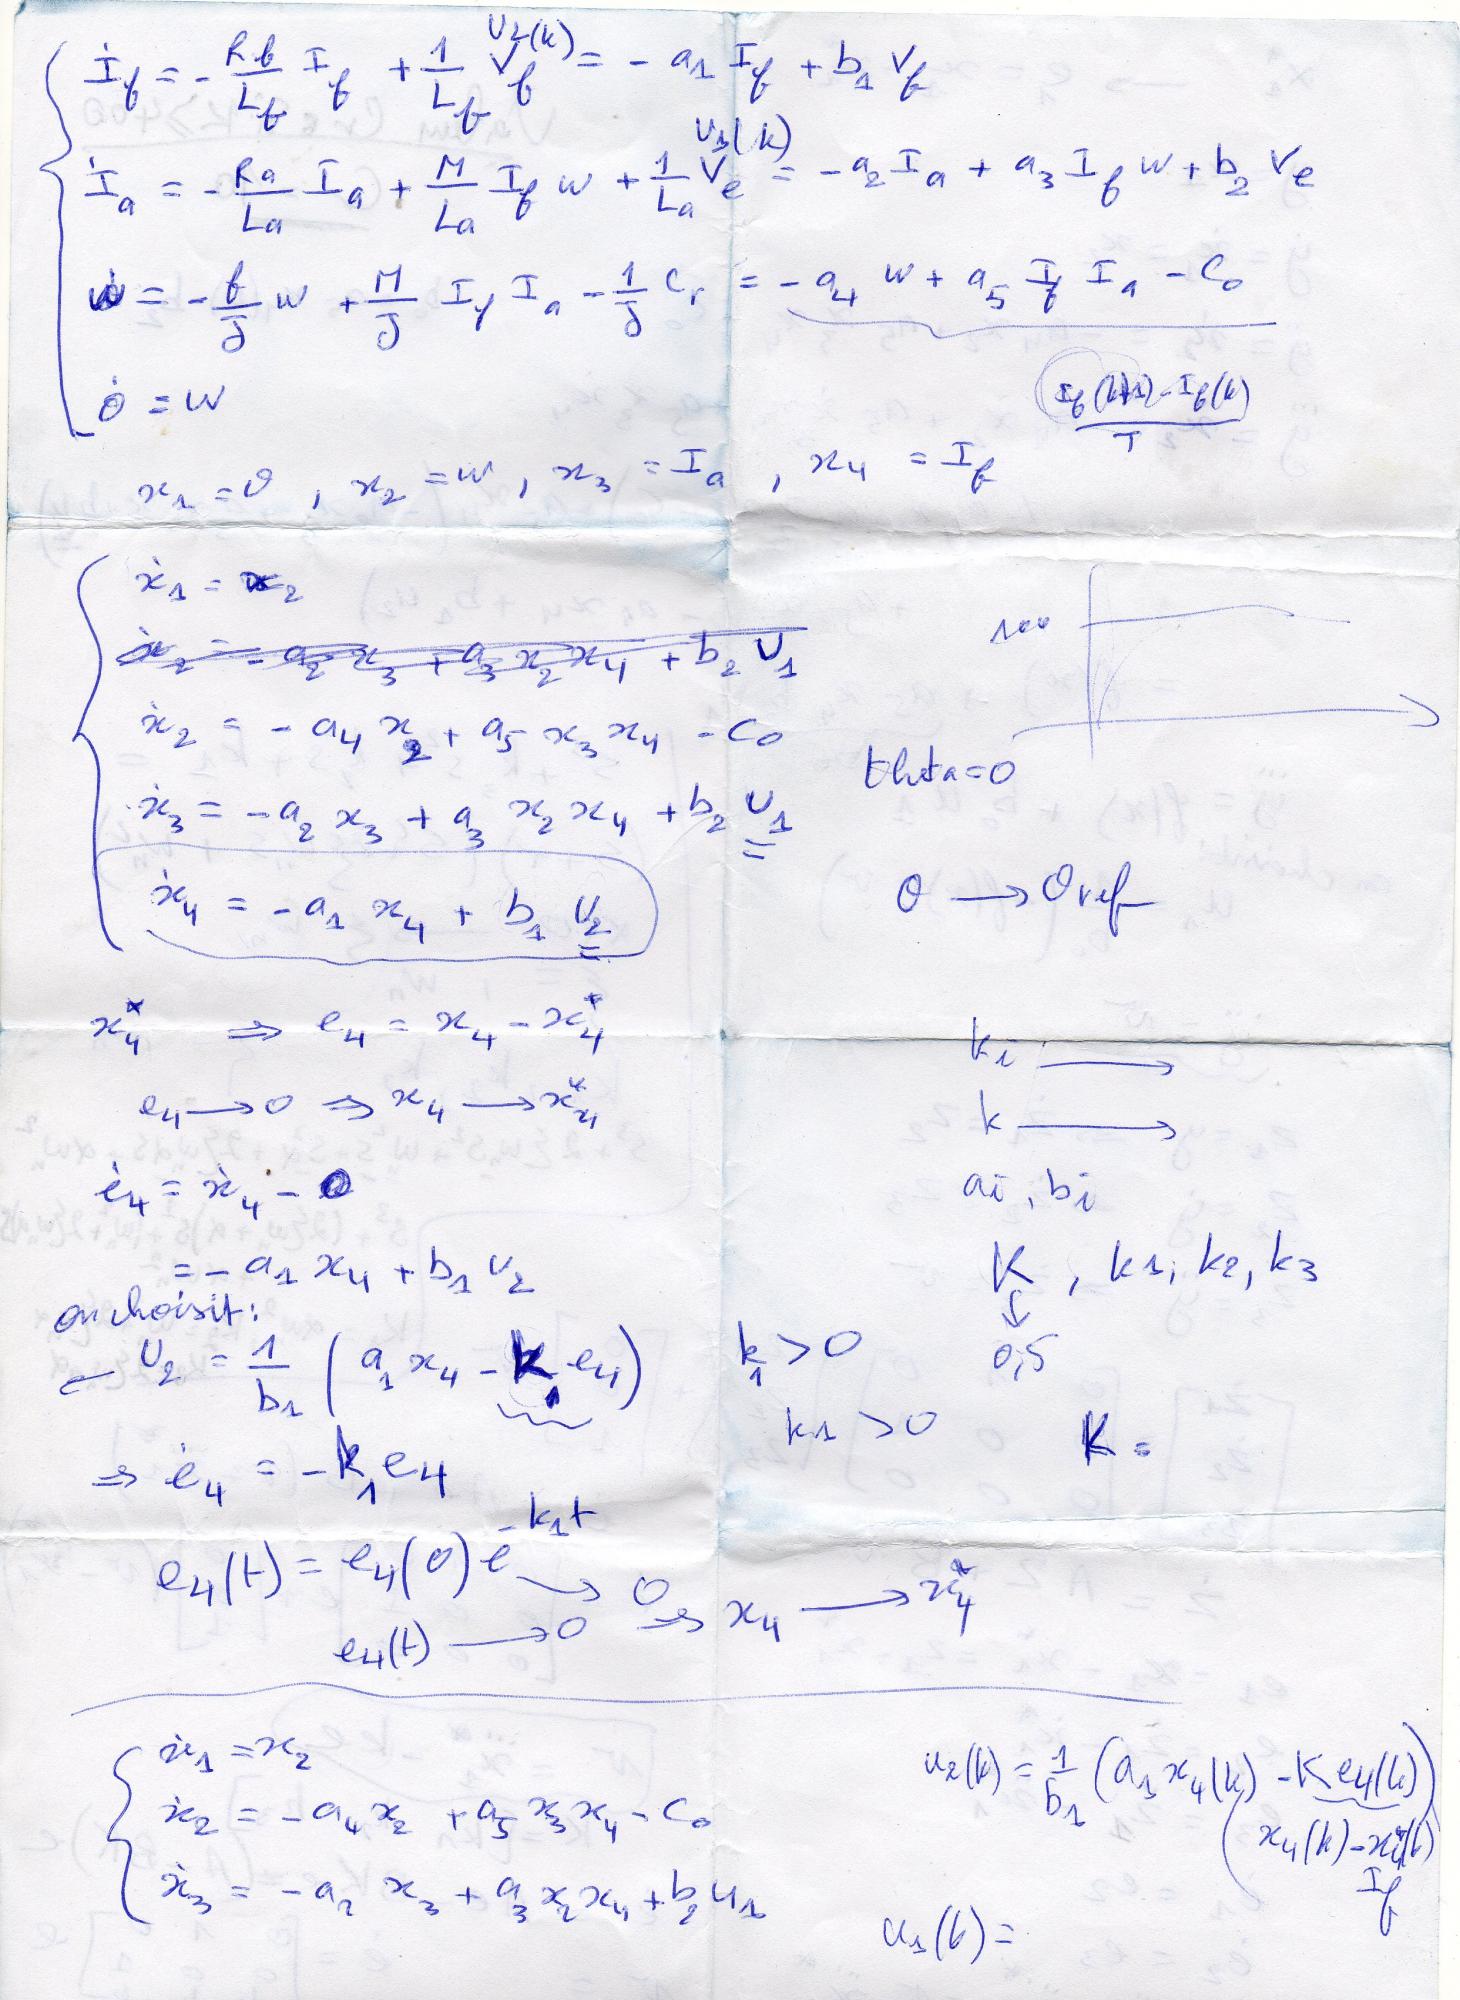 İf = - Rf/Lf If + 1/Lf Vf = - a1 If + b1 Vf
U2(k)
İa = - Ra/La Ia + M/La If w + 1/La Ve = - a2 Ia + a3 If w + b2 Ve
U1(k)
ẇ = - f/J w + M/J If Ia - 1/J Cr = - a4 w + a5 If Ia - C0
θ̇ = w
(If(k+1) - If(k))/T
x1 = θ , x2 = w , x3 = Ia , x4 = If
ẋ1 = x2
ẋ2 = - a2 x3 + a3 x2 x4 + b2 U1
ẋ2 = - a4 x2 + a5 x3 x4 - C0
ẋ3 = - a2 x3 + a3 x2 x4 + b2 U1
ẋ4 = - a1 x4 + b1 U2
100
theta=0
θ → θref
x4* ⇒ e4 = x4 - x4*
e4 → 0 ⇒ x4 → x4*
ė4 = ẋ4 - 0
= - a1 x4 + b1 U2
on choisit:
U2 = 1/b1 (a1 x4 - k1 e4)
⇒ ė4 = - k1 e4
e4(t) = e4(0) e^-k1t → 0
e4(t) → 0 ⇒ x4 → x4*
ki →
k →
ai, bi
K , k1, k2, k3
↓
0,5
k1 > 0
k1 > 0
K =
ẋ1 = x2
ẋ2 = - a4 x2 + a5 x3 x4 - C0
ẋ3 = - a2 x3 + a3 x2 x4 + b2 U1
u2(k) = 1/b1 (a1 x4(k) - K e4(k))
x4(k) - x4*(k)
If
u1(k) =